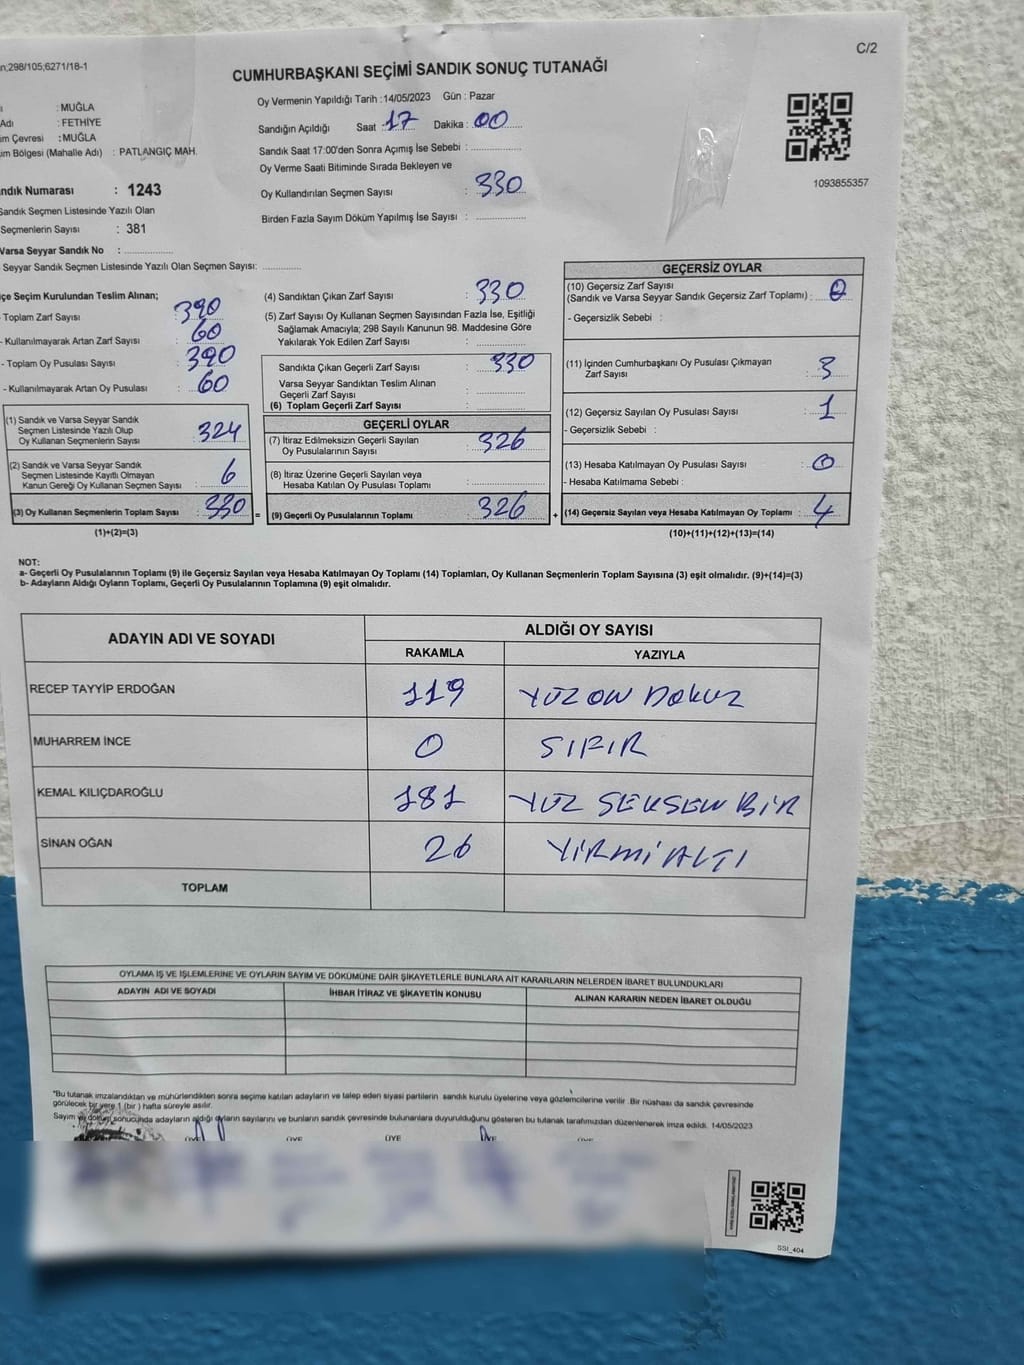 C/2
n;298/105;6271/18-1
CUMHURBAŞKANI SEÇİMİ SANDIK SONUÇ TUTANAĞI
: MUĞLA
Adı : FETHİYE
im Çevresi : MUĞLA
im Bölgesi (Mahalle Adı) : PATLANGIÇ MAH.
ndık Numarası : 1243
Sandık Seçmen Listesinde Yazılı Olan
Seçmenlerin Sayısı : 381
Varsa Seyyar Sandık No : ..............
Seyyar Sandık Seçmen Listesinde Yazılı Olan Seçmen Sayısı: ............
Oy Vermenin Yapıldığı Tarih :14/05/2023 Gün : Pazar
Sandığın Açıldığı Saat : 17 Dakika : 00
Sandık Saat 17:00'den Sonra Açımış İse Sebebi : ..............
Oy Verme Saati Bitiminde Sırada Bekleyen ve
Oy Kullandırılan Seçmen Sayısı : 330
Birden Fazla Sayım Döküm Yapılmış İse Sayısı : ..............
1093855357
içe Seçim Kurulundan Teslim Alınan;
- Toplam Zarf Sayısı : 390
- Kullanılmayarak Artan Zarf Sayısı : 60
- Toplam Oy Pusulası Sayısı : 390
- Kullanılmayarak Artan Oy Pusulası : 60
(1) Sandık ve Varsa Seyyar Sandık
Seçmen Listesinde Yazılı Olup
Oy Kullanan Seçmenlerin Sayısı : 324
(2) Sandık ve Varsa Seyyar Sandık
Seçmen Listesinde Kayıtlı Olmayan
Kanun Gereği Oy Kullanan Seçmen Sayısı : 6
(3) Oy Kullanan Seçmenlerin Toplam Sayısı : 330
(1)+(2)=(3)
(4) Sandıktan Çıkan Zarf Sayısı : 330
(5) Zarf Sayısı Oy Kullanan Seçmen Sayısından Fazla İse, Eşitliği
Sağlamak Amacıyla; 298 Sayılı Kanunun 98. Maddesine Göre
Yakılarak Yok Edilen Zarf Sayısı : ..............
Sandıkta Çıkan Geçerli Zarf Sayısı : 330
Varsa Seyyar Sandıktan Teslim Alınan
Geçerli Zarf Sayısı : ..............
(6) Toplam Geçerli Zarf Sayısı : ..............
GEÇERLİ OYLAR
(7) İtiraz Edilmeksizin Geçerli Sayılan
Oy Pusulalarının Sayısı : 326
(8) İtiraz Üzerine Geçerli Sayılan veya
Hesaba Katılan Oy Pusulası Toplamı : ..............
= (9) Geçerli Oy Pusulalarının Toplamı : 326
+
GEÇERSİZ OYLAR
(10) Geçersiz Zarf Sayısı
(Sandık ve Varsa Seyyar Sandık Geçersiz Zarf Toplamı) : 0
- Geçersizlik Sebebi :
(11) İçinden Cumhurbaşkanı Oy Pusulası Çıkmayan
Zarf Sayısı : 3
(12) Geçersiz Sayılan Oy Pusulası Sayısı : 1
- Geçersizlik Sebebi :
(13) Hesaba Katılmayan Oy Pusulası Sayısı : 0
- Hesaba Katılmama Sebebi :
(14) Geçersiz Sayılan veya Hesaba Katılmayan Oy Toplamı : 4
(10)+(11)+(12)+(13)=(14)
NOT:
a- Geçerli Oy Pusulalarının Toplamı (9) ile Geçersiz Sayılan veya Hesaba Katılmayan Oy Toplamı (14) Toplamları, Oy Kullanan Seçmenlerin Toplam Sayısına (3) eşit olmalıdır. (9)+(14)=(3)
b- Adayların Aldığı Oyların Toplamı, Geçerli Oy Pusulalarının Toplamına (9) eşit olmalıdır.
ADAYIN ADI VE SOYADI ALDIĞI OY SAYISI
RAKAMLA YAZIYLA
RECEP TAYYİP ERDOĞAN 119 YÜZ ON DOKUZ
MUHARREM İNCE 0 SIFIR
KEMAL KILIÇDAROĞLU 181 YÜZ SEKSEN BİR
SİNAN OĞAN 26 YİRMİ ALTI
TOPLAM
OYLAMA İŞ VE İŞLEMLERİNE VE OYLARIN SAYIM VE DÖKÜMÜNE DAİR ŞİKAYETLERLE BUNLARA AİT KARARLARIN NELERDEN İBARET BULUNDUKLARI
ADAYIN ADI VE SOYADI İHBAR İTİRAZ VE ŞİKAYETİN KONUSU ALINAN KARARIN NEDEN İBARET OLDUĞU
*Bu tutanak imzalandıktan ve mühürlendikten sonra seçime katılan adayların ve talep eden siyasi partilerin sandık kurulu üyelerine veya gözlemcilerine verilir .Bir nüshası da sandık çevresinde
görülecek bir yere 1 (bir ) hafta süreyle asılır.
Sayım ve döküm sonucunda adayların aldığı oyların sayılarını ve bunların sandık çevresinde bulunanlara duyurulduğunu gösteren bu tutanak tarafımızdan düzenlenerek imza edildi. 14/05/2023
ÜYE ÜYE ÜYE ÜYE ÜYE
SSI_404